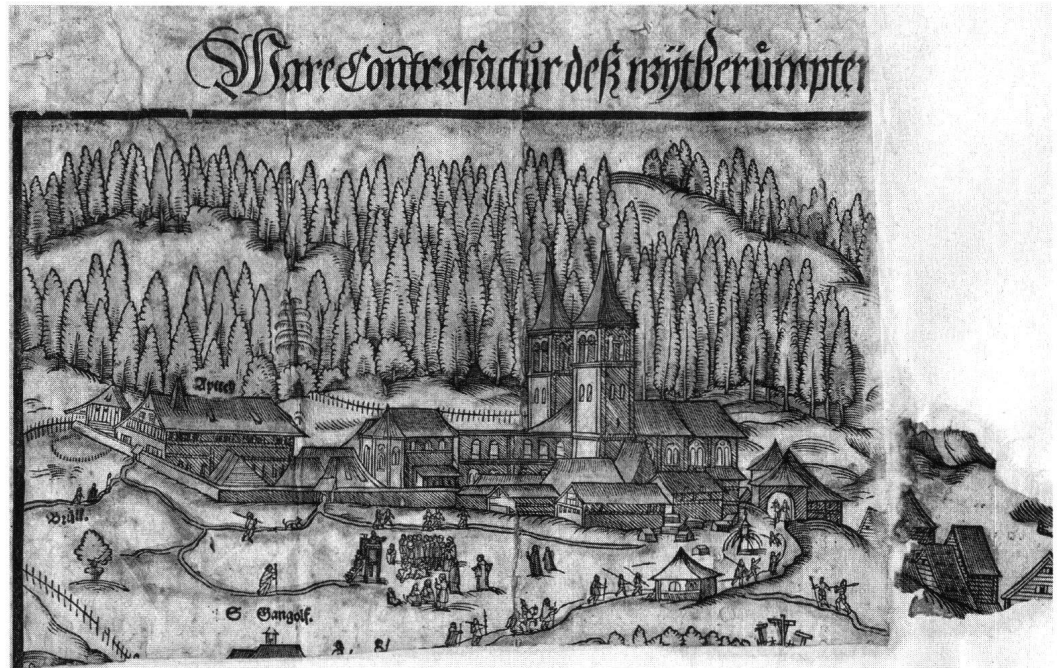 Ware Contrafactur deß wÿtberůmpten
Brüll.
S Gangolf.